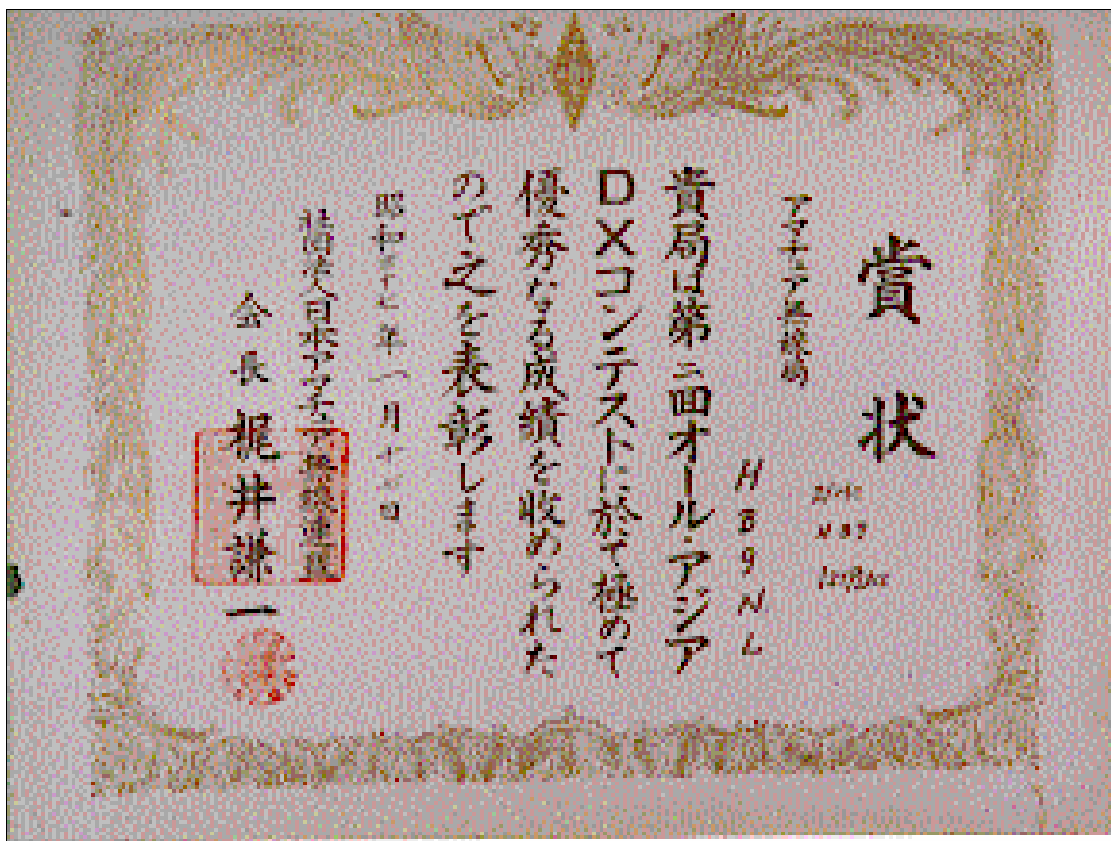 賞状
アマチュア無線局
HB9NL
貴局は第二回オール・アジア
DXコンテストに於て極めて
優秀なる成績を収められた
ので之を表彰します
年一月十七日
社団法人日本アマチュア無線連盟
会長 梶井謙一